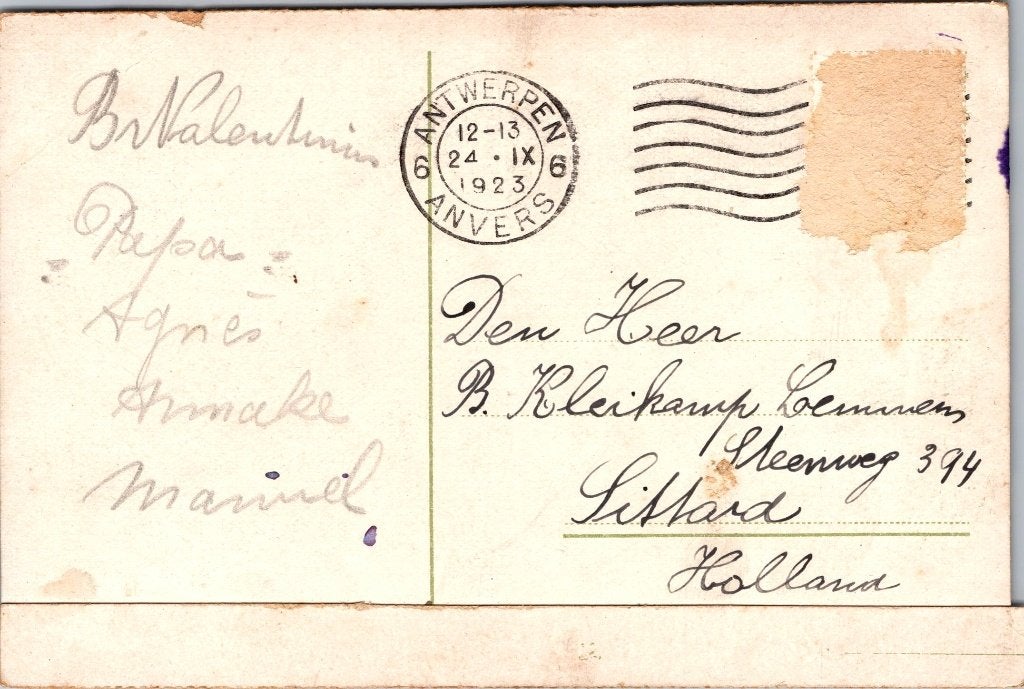 Br Valentinus
"Papa"
Agnès
Annake
Manuel
ANTWERPEN
12-13
24 · IX
1923
6 6
ANVERS
Den Heer
B. Kleikamp Lemmens
Steenweg 394
Sittard
Holland